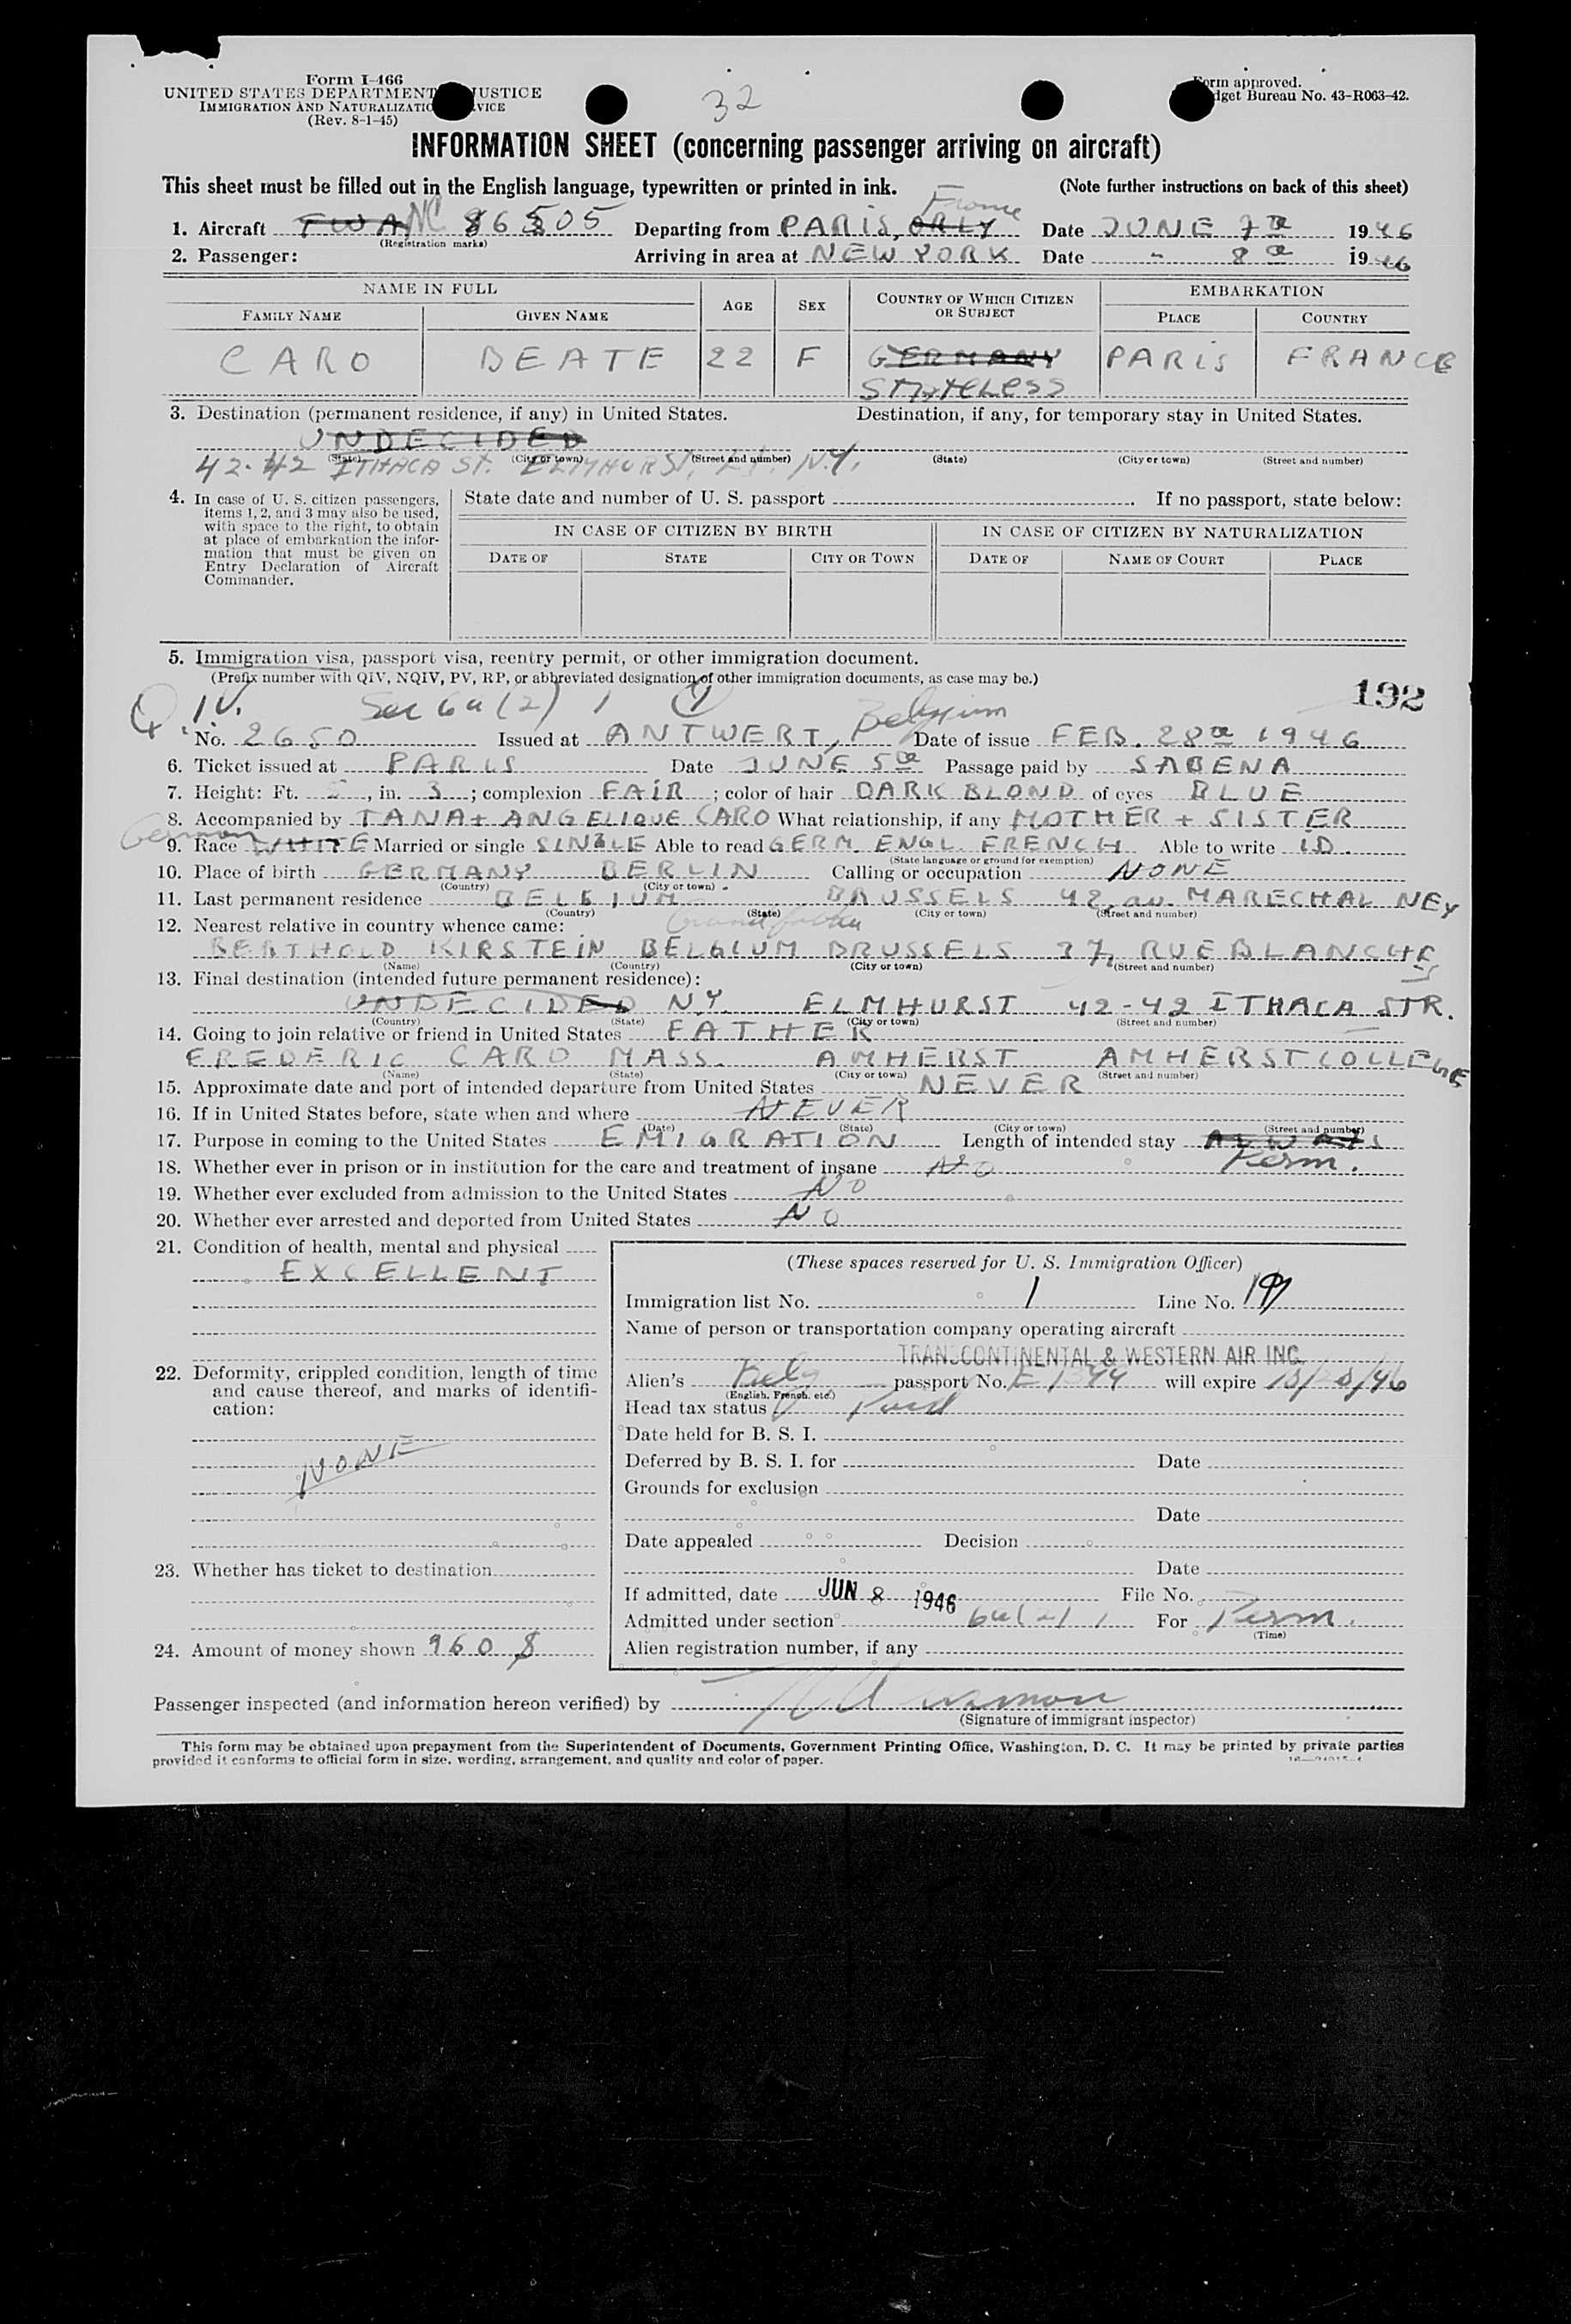 Form I-466
UNITED STATES DEPARTMENT JUSTICE
IMMIGRATION AND NATURALIZATIO VICE
(Rev. 8-1-45)
32
Form approved.
dget Bureau No. 43-R063-42.
INFORMATION SHEET (concerning passenger arriving on aircraft)
This sheet must be filled out in the English language, typewritten or printed in ink. (Note further instructions on back of this sheet)
France
1. Aircraft TWA NC 86505 Departing from PARIS, ORLY Date JUNE 7th 1946
(Registration marks)
2. Passenger: Arriving in area at NEW YORK Date " 8th 1946
NAME IN FULL AGE SEX COUNTRY OF WHICH CITIZEN OR SUBJECT EMBARKATION
FAMILY NAME GIVEN NAME PLACE COUNTRY
CARO BEATE 22 F GERMANY PARIS FRANCE
STATELESS
3. Destination (permanent residence, if any) in United States. Destination, if any, for temporary stay in United States.
UNDECIDED
(State) (City or town) (Street and number) (State) (City or town) (Street and number)
42-42 ITHACA ST. ELMHURST, L.I. N.Y.
4. In case of U. S. citizen passengers, items 1, 2, and 3 may also be used, with space to the right, to obtain at place of embarkation the information that must be given on Entry Declaration of Aircraft Commander.
State date and number of U. S. passport If no passport, state below:
IN CASE OF CITIZEN BY BIRTH IN CASE OF CITIZEN BY NATURALIZATION
DATE OF STATE CITY OR TOWN DATE OF NAME OF COURT PLACE
5. Immigration visa, passport visa, reentry permit, or other immigration document.
(Prefix number with QIV, NQIV, PV, RP, or abbreviated designation of other immigration documents, as case may be.)
192
Q IV. Sec 6a(2) 1 Belgium
No. 2650 Issued at ANTWERT, Date of issue FEB. 28th 1946
6. Ticket issued at PARIS Date JUNE 5th Passage paid by SABENA
7. Height: Ft. 5, in. 3; complexion FAIR; color of hair DARK BLOND of eyes BLUE
8. Accompanied by TANA + ANGELIQUE CARO What relationship, if any MOTHER + SISTER
German
9. Race WHITE Married or single SINGLE Able to read GERM. ENGL. FRENCH Able to write ID.
(State language or ground for exemption)
10. Place of birth GERMANY BERLIN Calling or occupation NONE
(Country) (City or town)
11. Last permanent residence BELGIUM BRUSSELS 42, av. MARECHAL NEY
(Country) (State) (City or town) (Street and number)
12. Nearest relative in country whence came: Grandfather
BERTHOLD KIRSTEIN BELGIUM BRUSSELS 37, RUE BLANCHE
(Name) (Country) (City or town) (Street and number)
13. Final destination (intended future permanent residence):
UNDECIDED N.Y. ELMHURST 42-42 ITHACA STR.
(Country) (State) (City or town) (Street and number)
14. Going to join relative or friend in United States FATHER
FREDERIC CARO MASS. AMHERST AMHERST COLLEGE
(Name) (State) (City or town) (Street and number)
15. Approximate date and port of intended departure from United States NEVER
16. If in United States before, state when and where NEVER
(Date) (State) (City or town) (Street and number)
17. Purpose in coming to the United States EMIGRATION Length of intended stay ALWAYS
Perm.
18. Whether ever in prison or in institution for the care and treatment of insane NO
19. Whether ever excluded from admission to the United States NO
20. Whether ever arrested and deported from United States NO
21. Condition of health, mental and physical
EXCELLENT
22. Deformity, crippled condition, length of time and cause thereof, and marks of identification:
NONE
23. Whether has ticket to destination
24. Amount of money shown 960 $
(These spaces reserved for U. S. Immigration Officer)
Immigration list No. 1 Line No.
Name of person or transportation company operating aircraft
TRANSCONTINENTAL & WESTERN AIR INC.
Alien's Belg passport No. will expire
(English, French, etc.)
Head tax status Paid
Date held for B. S. I.
Deferred by B. S. I. for Date
Grounds for exclusion
Date
Date appealed Decision
Date
If admitted, date JUN 8 1946 File No.
Admitted under section 6a(2) 1 For Perm.
(Time)
Alien registration number, if any
Passenger inspected (and information hereon verified) by
(Signature of immigrant inspector)
This form may be obtained upon prepayment from the Superintendent of Documents, Government Printing Office, Washington, D. C. It may be printed by private parties
provided it conforms to official form in size, wording, arrangement, and quality and color of paper.